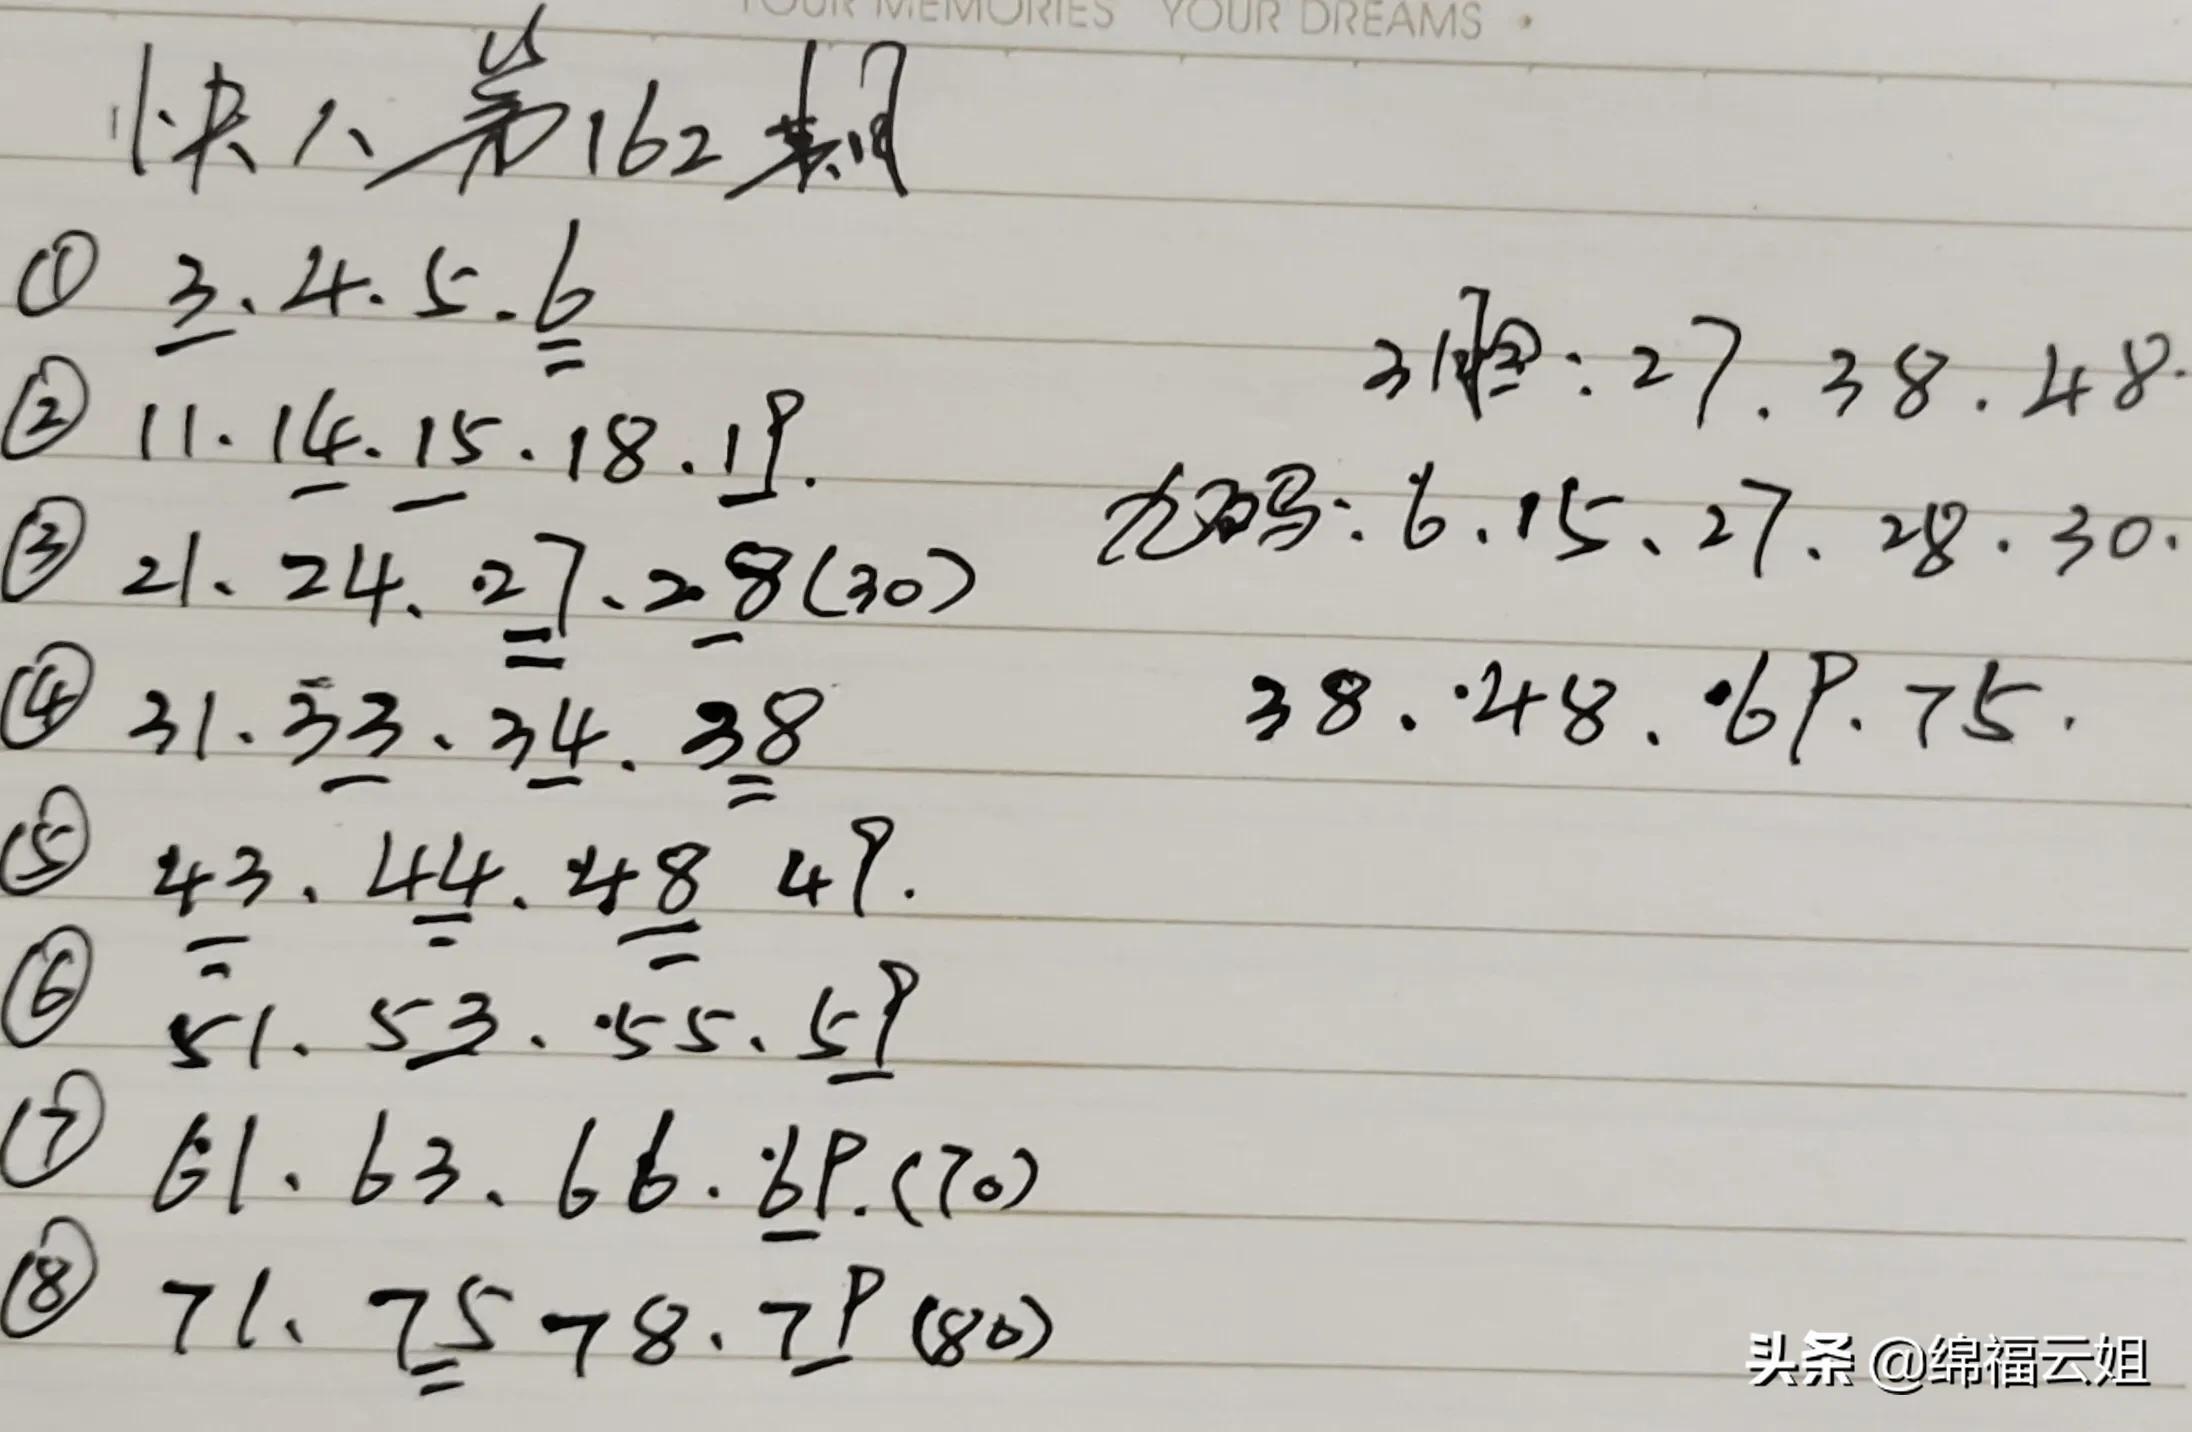 YOUR MEMORIES YOUR DREAMS
快八第162期
① 3.4.5.6
② 11.14.15.18.19.
③ 21.24.27.28(30)
④ 31.33.34.38
⑤ 43.44.48 49.
⑥ 51.53.55.59
⑦ 61.63.66.69.(70)
⑧ 71.75 78.79(80)
3胆:27.38.48.
九码:6.15.27.28.30.
38.48.69.75.
头条 @绵福云姐